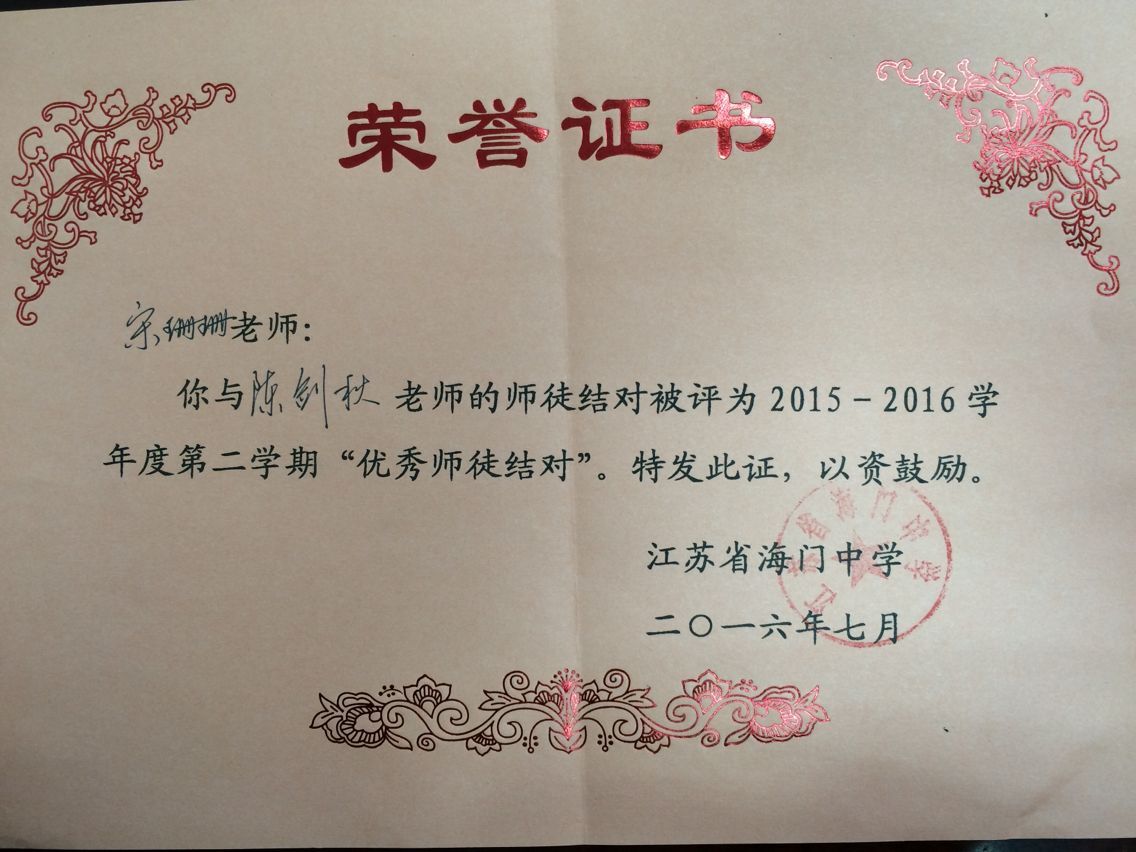 荣誉证书
宋珊珊老师：
你与陈剑秋老师的师徒结对被评为2015－2016学
年度第二学期“优秀师徒结对”。特发此证，以资鼓励。
江苏省海门中学
二〇一六年七月
江苏省海门中学